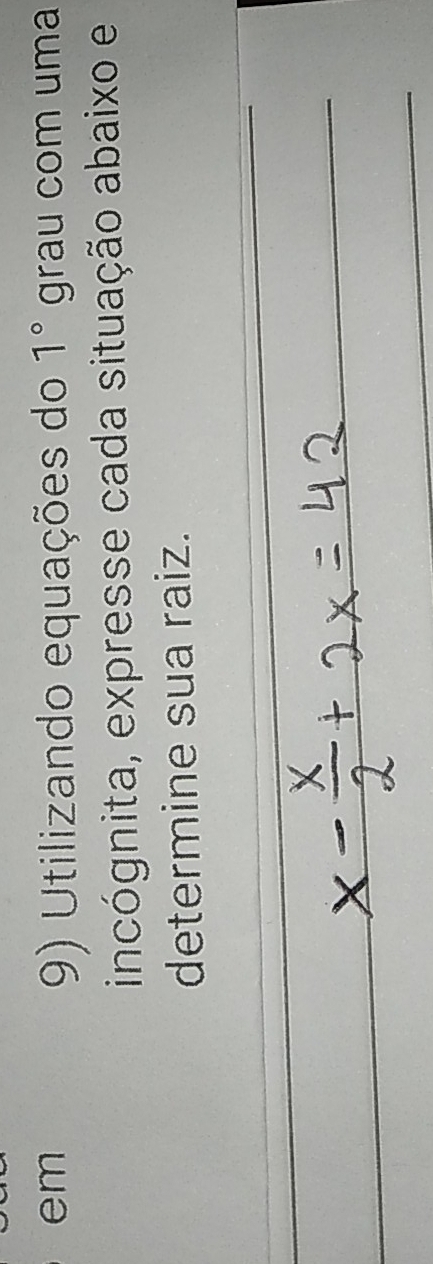 em
9) Utilizando equações do 1° grau com uma
incógnita, expresse cada situação abaixo e
determine sua raiz.
x - x/2 + 2x = 42